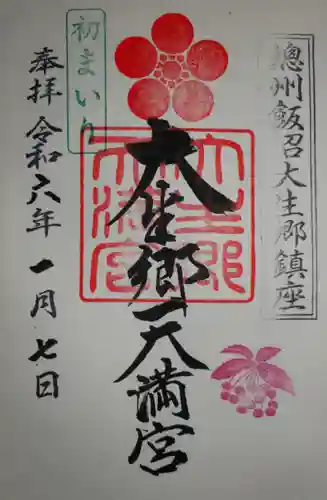 總州飯沼大生郷鎮座
大生郷天満宮
初まいり
奉拝 令和六年 一月七日